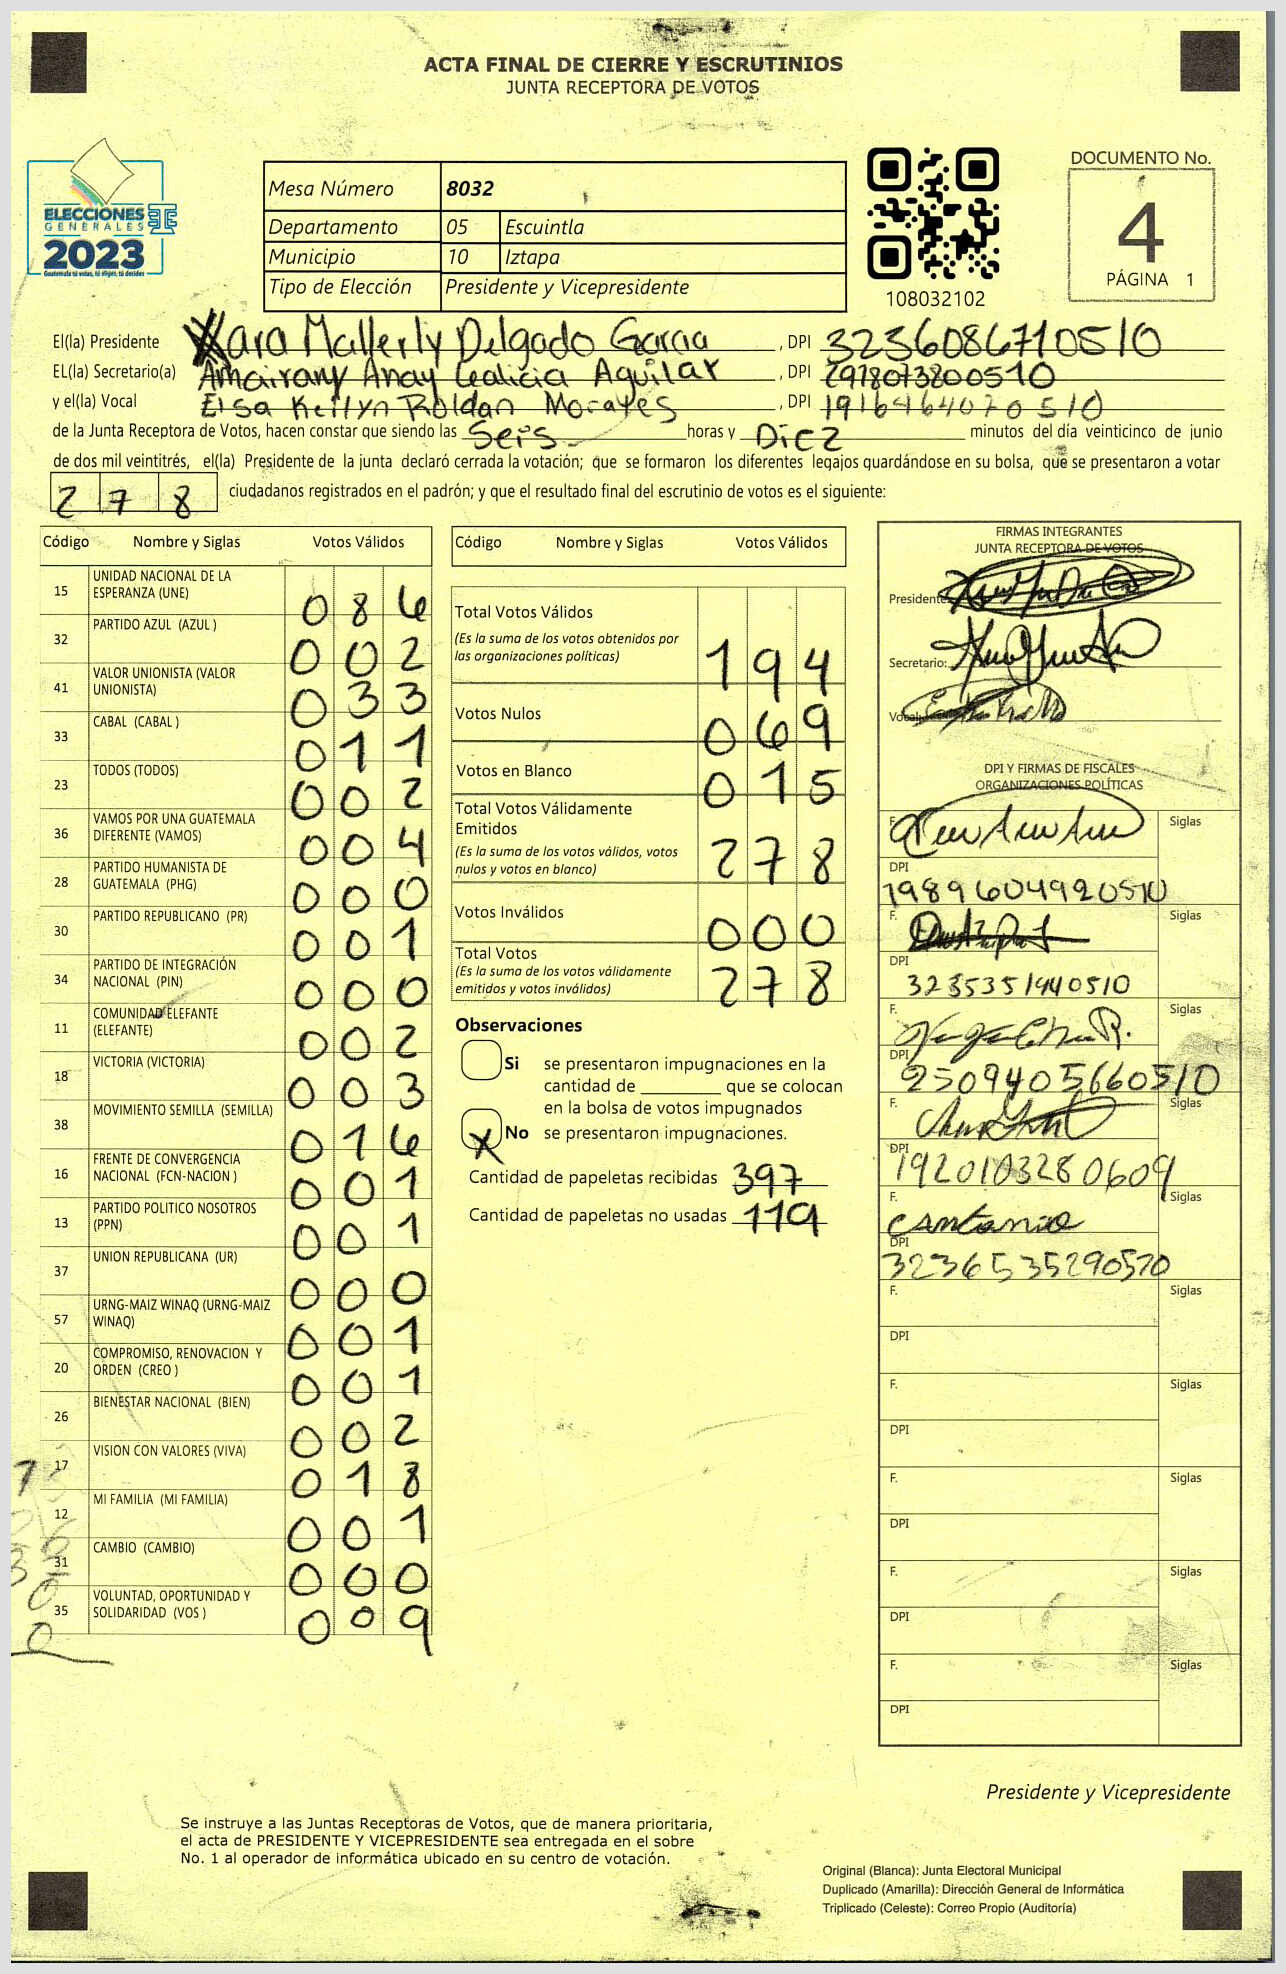 ACTA FINAL DE CIERRE Y ESCRUTINIOS
JUNTA RECEPTORA DE VOTOS
ELECCIONES
GENERALES
2023
Guatemala tú votas, tú eliges, tú decides
Mesa Número 8032
Departamento 05 Escuintla
Municipio 10 Iztapa
Tipo de Elección Presidente y Vicepresidente
108032102
DOCUMENTO No.
4
PÁGINA 1
El(la) Presidente Xara Mallerly Delgado Garcia, DPI 3236086710510
EL(la) Secretario(a) Amairany Anay Galicia Aguilar, DPI 2978073800510
y el(la) Vocal Elsa Keilyn Roldan Morales, DPI 1916464070510
de la Junta Receptora de Votos, hacen constar que siendo las Seis horas y Diez minutos del día veinticinco de junio
de dos mil veintitrés, el(la) Presidente de la junta declaró cerrada la votación; que se formaron los diferentes legajos guardándose en su bolsa, que se presentaron a votar
278 ciudadanos registrados en el padrón; y que el resultado final del escrutinio de votos es el siguiente:
Código Nombre y Siglas Votos Válidos
15 UNIDAD NACIONAL DE LA ESPERANZA (UNE) 086
32 PARTIDO AZUL (AZUL ) 002
41 VALOR UNIONISTA (VALOR UNIONISTA) 033
33 CABAL (CABAL ) 011
23 TODOS (TODOS) 002
36 VAMOS POR UNA GUATEMALA DIFERENTE (VAMOS) 004
28 PARTIDO HUMANISTA DE GUATEMALA (PHG) 000
30 PARTIDO REPUBLICANO (PR) 001
34 PARTIDO DE INTEGRACIÓN NACIONAL (PIN) 000
11 COMUNIDAD ELEFANTE (ELEFANTE) 002
18 VICTORIA (VICTORIA) 003
38 MOVIMIENTO SEMILLA (SEMILLA) 016
16 FRENTE DE CONVERGENCIA NACIONAL (FCN-NACION ) 001
13 PARTIDO POLITICO NOSOTROS (PPN) 001
37 UNION REPUBLICANA (UR) 000
57 URNG-MAIZ WINAQ (URNG-MAIZ WINAQ) 001
20 COMPROMISO, RENOVACION Y ORDEN (CREO ) 001
26 BIENESTAR NACIONAL (BIEN) 002
17 VISION CON VALORES (VIVA) 018
12 MI FAMILIA (MI FAMILIA) 001
31 CAMBIO (CAMBIO) 000
35 VOLUNTAD, OPORTUNIDAD Y SOLIDARIDAD (VOS ) 009
Código Nombre y Siglas Votos Válidos
Total Votos Válidos 194
(Es la suma de los votos obtenidos por
las organizaciones políticas)
Votos Nulos 069
Votos en Blanco 015
Total Votos Válidamente
Emitidos 278
(Es la suma de los votos válidos, votos
nulos y votos en blanco)
Votos Inválidos 000
Total Votos 278
(Es la suma de los votos válidamente
emitidos y votos inválidos)
Observaciones
Si se presentaron impugnaciones en la
cantidad de ________ que se colocan
en la bolsa de votos impugnados
X No se presentaron impugnaciones.
Cantidad de papeletas recibidas 397
Cantidad de papeletas no usadas 119
FIRMAS INTEGRANTES
JUNTA RECEPTORA DE VOTOS
Presidente:
Secretario:
Vocal:
DPI Y FIRMAS DE FISCALES
ORGANIZACIONES POLÍTICAS
F. Siglas
DPI
1989604920510
F. Siglas
DPI
3235351940510
F. Siglas
DPI
2509405660510
F. Siglas
DPI
1920103280609
F. Siglas
DPI
3236535290510
F. Siglas
DPI
F. Siglas
DPI
F. Siglas
DPI
F. Siglas
DPI
F. Siglas
DPI
Presidente y Vicepresidente
Se instruye a las Juntas Receptoras de Votos, que de manera prioritaria,
el acta de PRESIDENTE Y VICEPRESIDENTE sea entregada en el sobre
No. 1 al operador de informática ubicado en su centro de votación.
Original (Blanca): Junta Electoral Municipal
Duplicado (Amarilla): Dirección General de Informática
Triplicado (Celeste): Correo Propio (Auditoría)